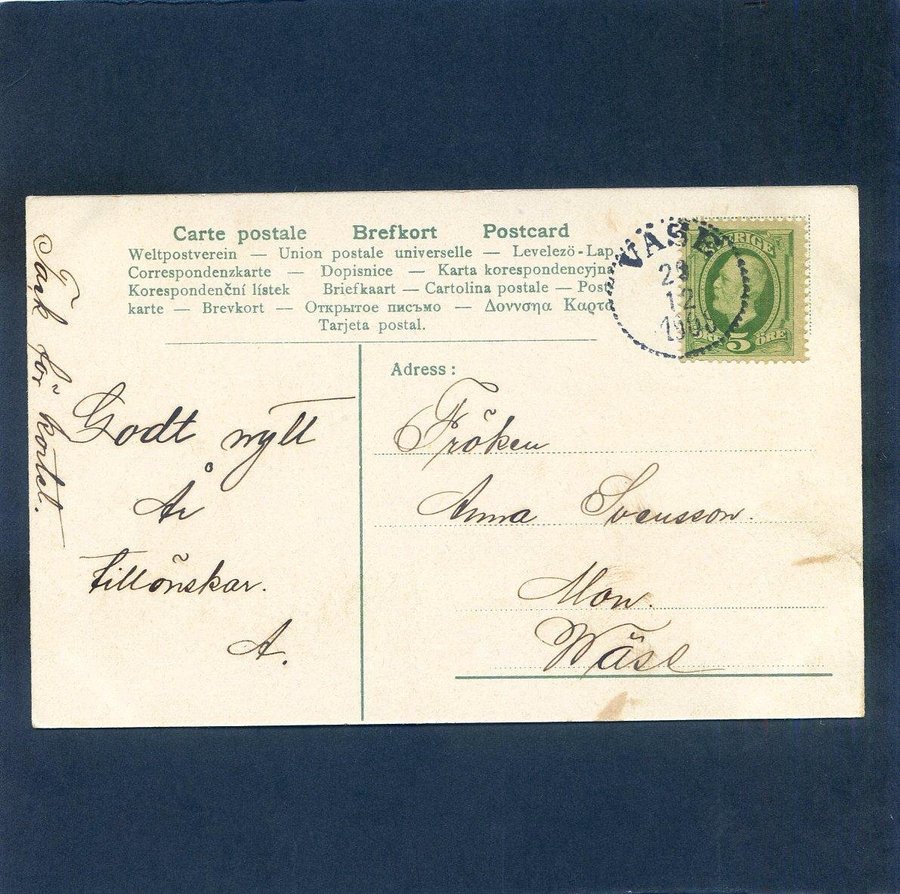 Carte postale Brefkort Postcard
Weltpostverein — Union postale universelle — Levelező-Lap
Correspondenzkarte — Dopisnice — Karta korespondencyjna
Korespondenční lístek Briefkaart — Cartolina postale — Post
karte — Brevkort — Открытое письмо — Δοννσηα Καρτα
Tarjeta postal.
VÄSE
29
12
SVERIGE
5 ÖRE
Adress:
Tack för kortet.
Godt nytt
År
tillönskar.
A.
Fröken
Anna Svensson.
Mon.
Wäse